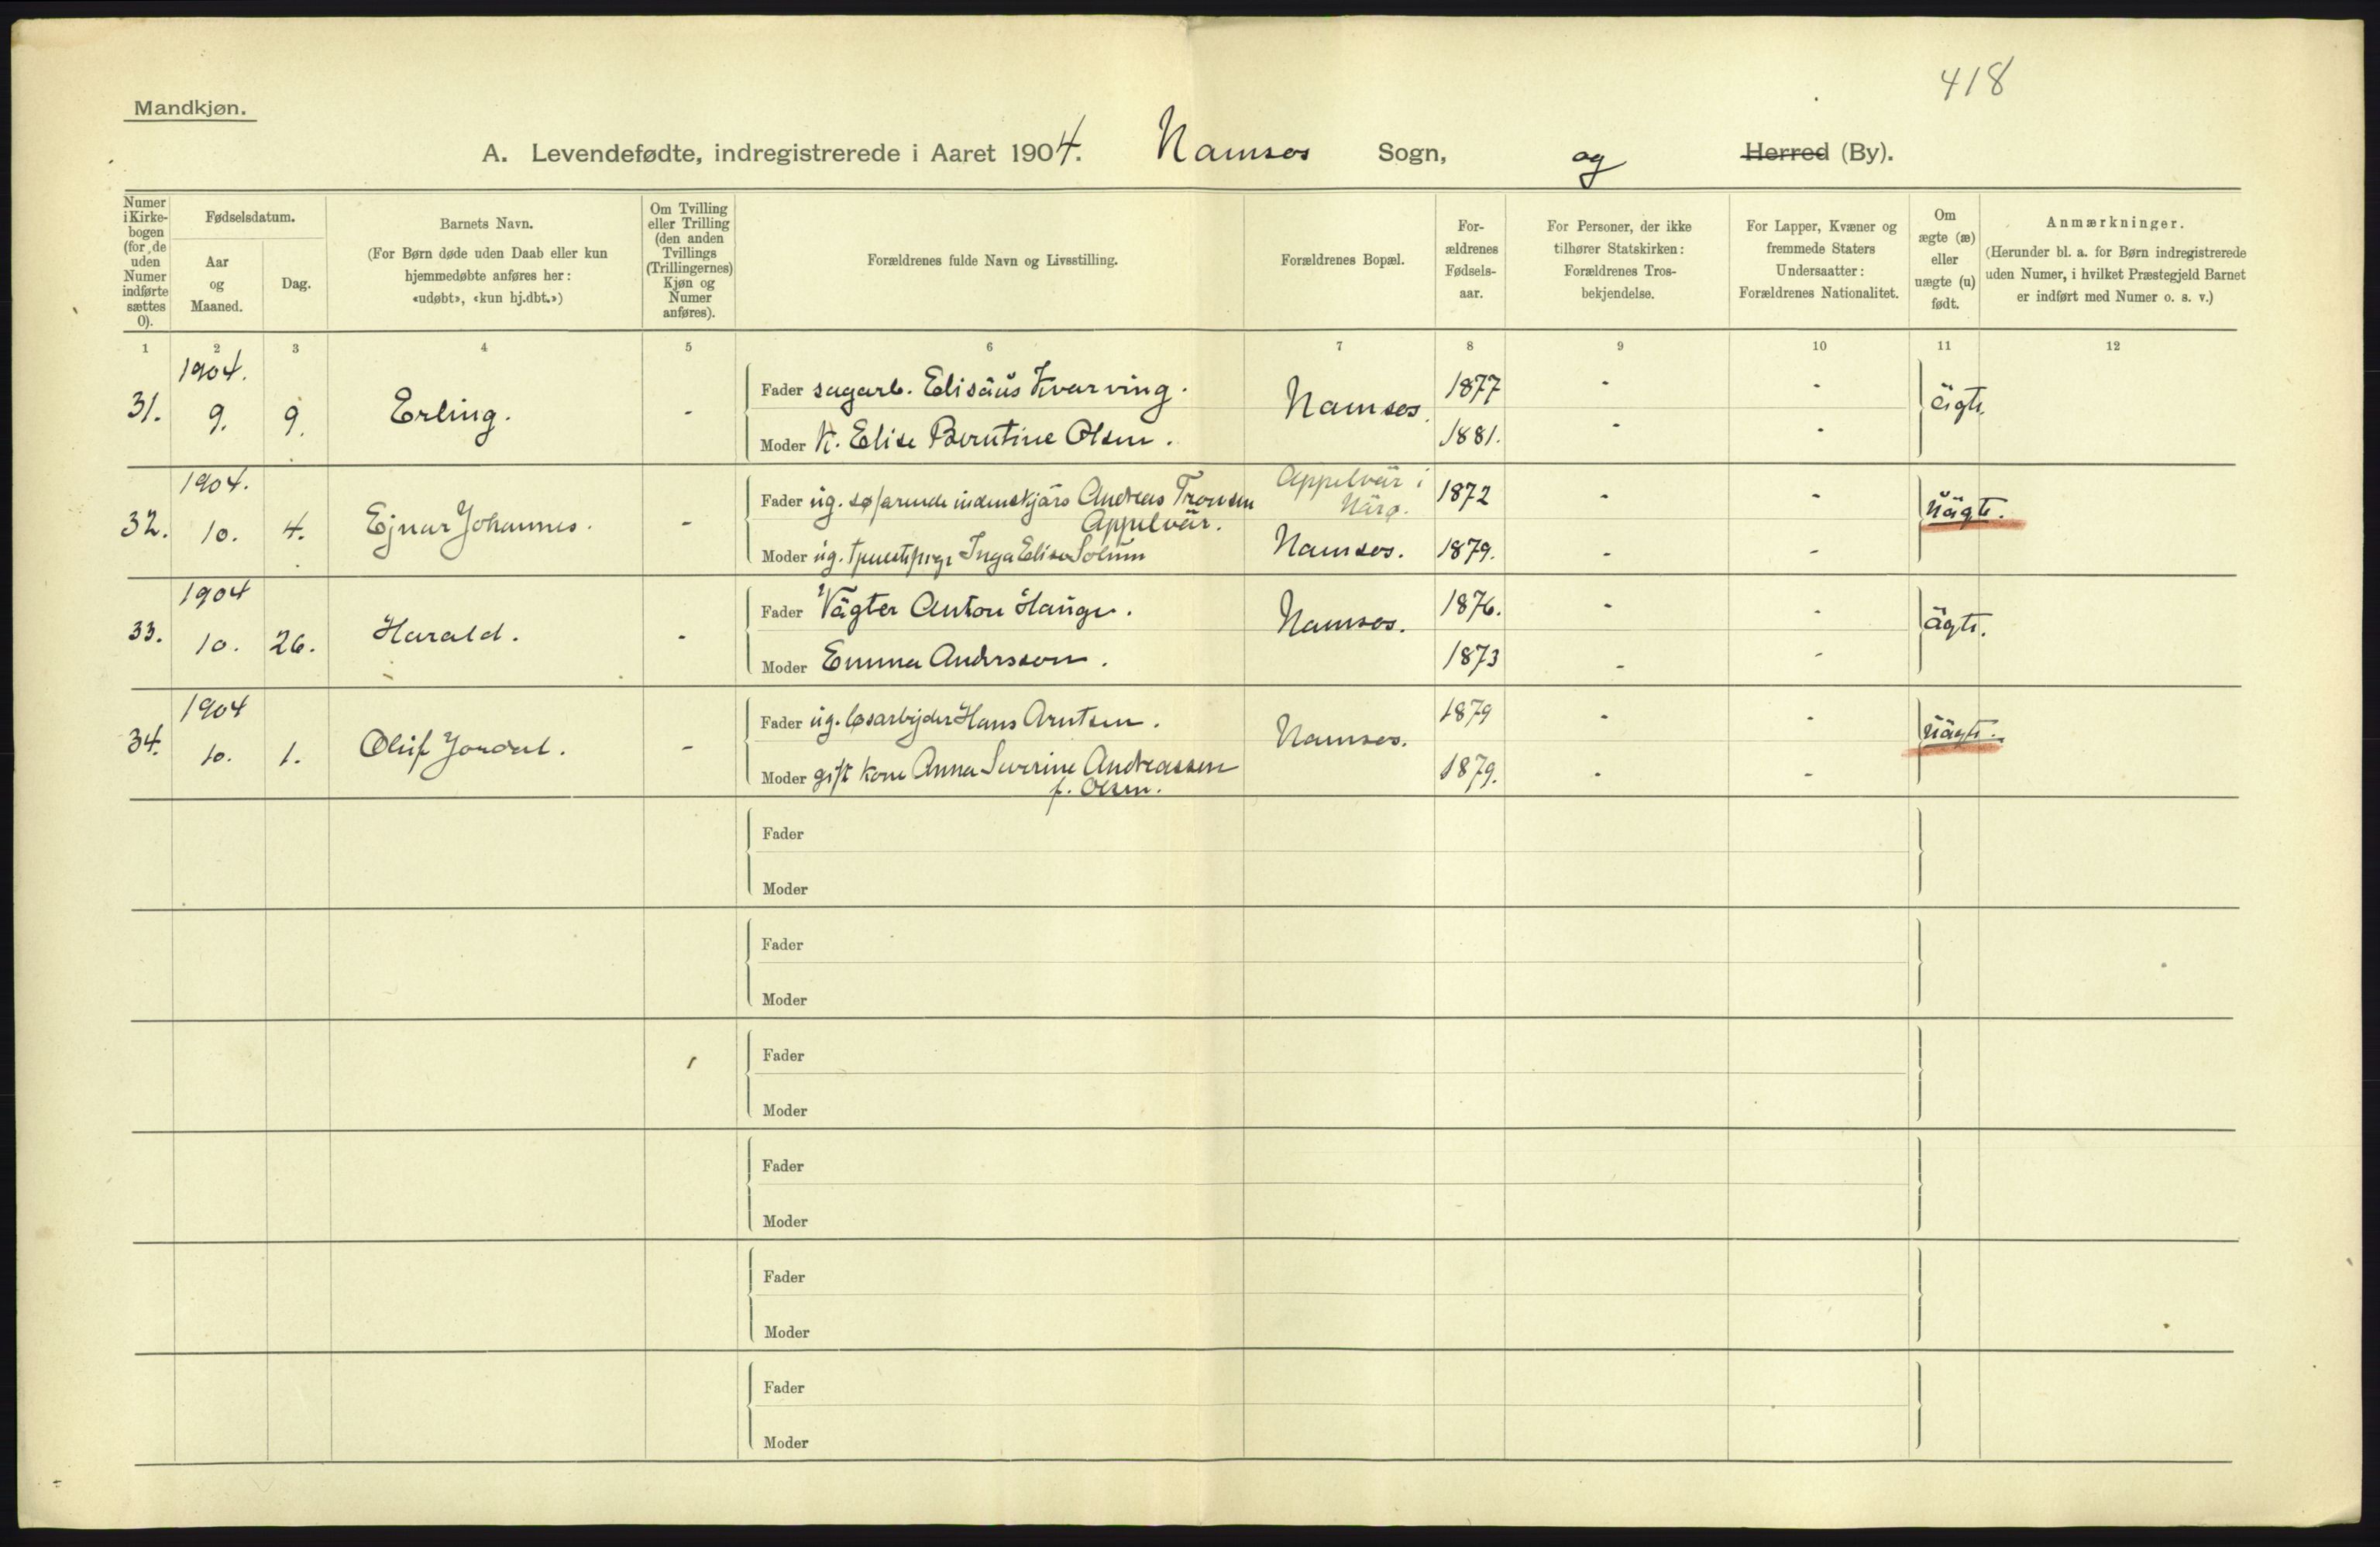 418
Mandkjøn.
A. Levendefødte, indregistrerede i Aaret 1904. Namsos Sogn, og Herred (By).
Numer i Kirke-bogen (for de uden Numer indførte sættes 0).
Fødselsdatum.
Aar og Maaned.
Dag.
Barnets Navn.
(For Børn døde uden Daab eller kun
hjemmedøbte anføres her:
«udøbt», «kun hj.dbt.»)
Om Tvilling
eller Trilling
(den anden
Tvillings
(Trillingernes)
Kjøn og
Numer
anføres).
Forældrenes fulde Navn og Livsstilling.
Forældrenes Bopæl.
For-
ældrenes
Fødsels-
aar.
For Personer, der ikke
tilhører Statskirken:
Forældrenes Tros-
bekjendelse.
For Lapper, Kvæner og
fremmede Staters
Undersaatter:
Forældrenes Nationalitet.
Om
ægte (æ)
eller
uægte (u)
født.
Anmærkninger.
(Herunder bl. a. for Børn indregistrerede
uden Numer, i hvilket Præstegjeld Barnet
er indført med Numer o. s. v.)
1 2 3 4 5 6 7 8 9 10 11 12
1904.
31. 9. 9. Erling. -
Fader sagarb. Elisäus Kvarving. Namsos. 1877 - - ägte.
Moder K. Elise Berntine Olsen. 1881. - -
1904.
32. 10. 4. Ejnar Johannes. -
Fader ug. søfarende indenskjärs Andreas Tronsen Appelvär. Appelvär i Närø. 1872 - - uägte.
Moder ug. Inga Elise Solum Namsos. 1879. - -
1904
33. 10. 26. Harald. -
Fader Vägter Anton Hauge. Namsos. 1876. - - ägte.
Moder Emma Andersson. 1873 - -
1904
34. 10. 1. Oluf Jordal. -
Fader ug. løsarbejder Hans Arntsen. Namsos. 1879 - - uägte.
Moder gift kone Anna Severine Andreassen f. Olsen. 1879. - -
Fader
Moder
Fader
Moder
Fader
Moder
Fader
Moder
Fader
Moder
Fader
Moder